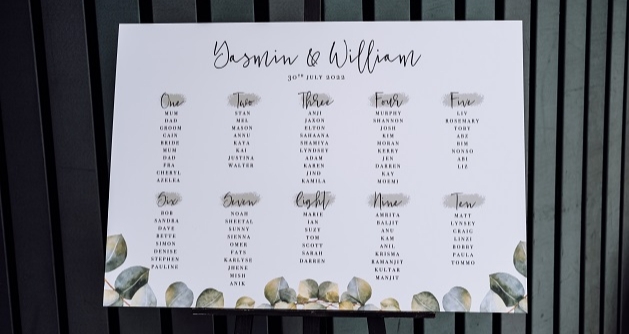 Yasmin & William
30TH JULY 2022
One
MUM
DAD
GROOM
CAIN
BRIDE
MUM
DAD
FRA
CHERYL
AZELEA
Two
STAN
MEL
MASON
ANNU
KAYA
KAI
JUSTINA
WALTER
Three
ANJI
JAXON
ELTON
SAHAANA
SHAMIYA
LYNDSEY
ADAM
KAREN
JINO
KAMILA
Four
MURPHY
SHANNON
JOSH
KIM
MORAN
KEREY
JEN
DARREN
KAY
NOEMI
Five
LIV
ROSEMARY
TOBY
ABZ
BIM
NONSO
ABI
LIZ
Six
BOB
SANDRA
DAVE
BETTE
SIMON
DENISE
STEPHEN
PAULINE
Seven
NOAH
SHEETAL
SUNNY
SIENNA
OMER
FATS
KARLYSE
JHENE
MISH
ANIK
Eight
MARIE
IAN
SUZY
TOM
SCOTT
SARAH
DARREN
Nine
AMRITA
BALJIT
ANU
KAM
ANIL
KRISMA
RAMANJIT
KULTAR
MANJIT
Ten
MATT
LYNSEY
CRAIG
LINZI
BOBBY
PAULA
TOMMO